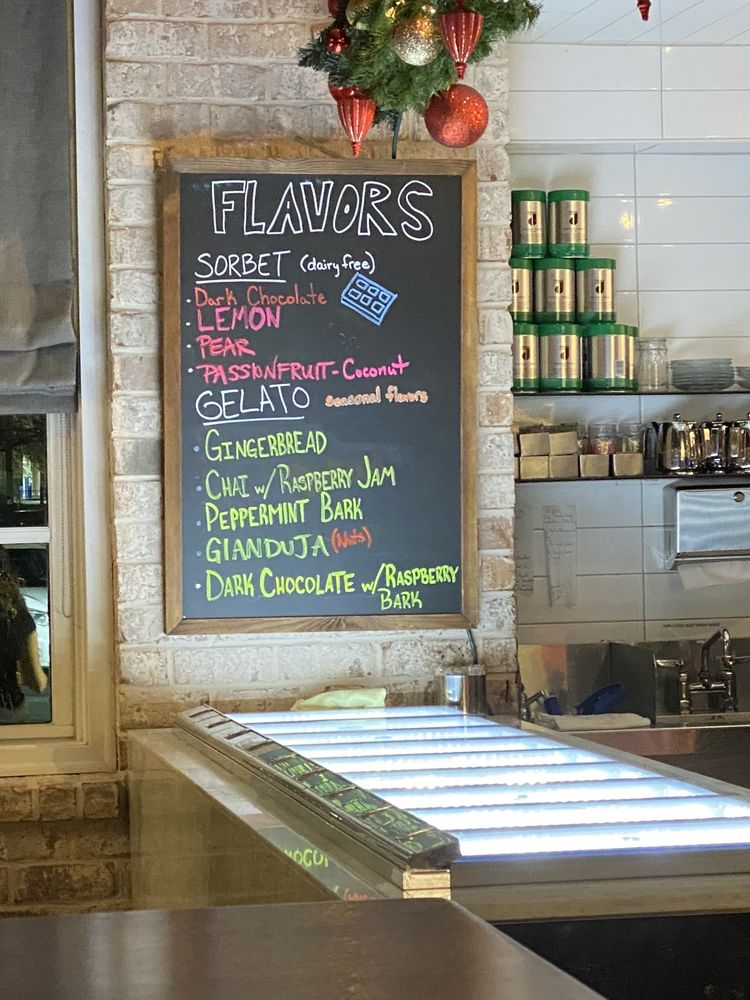 FLAVORS
SORBET (dairy free)
• Dark Chocolate
• LEMON
• PEAR
• PASSIONFRUIT-Coconut
GELATO seasonal flavors
• GINGERBREAD
• CHAI w/ RASPBERRY JAM
• PEPPERMINT BARK
• GIANDUJA (Nuts)
• DARK CHOCOLATE w/RASPBERRY
BARK